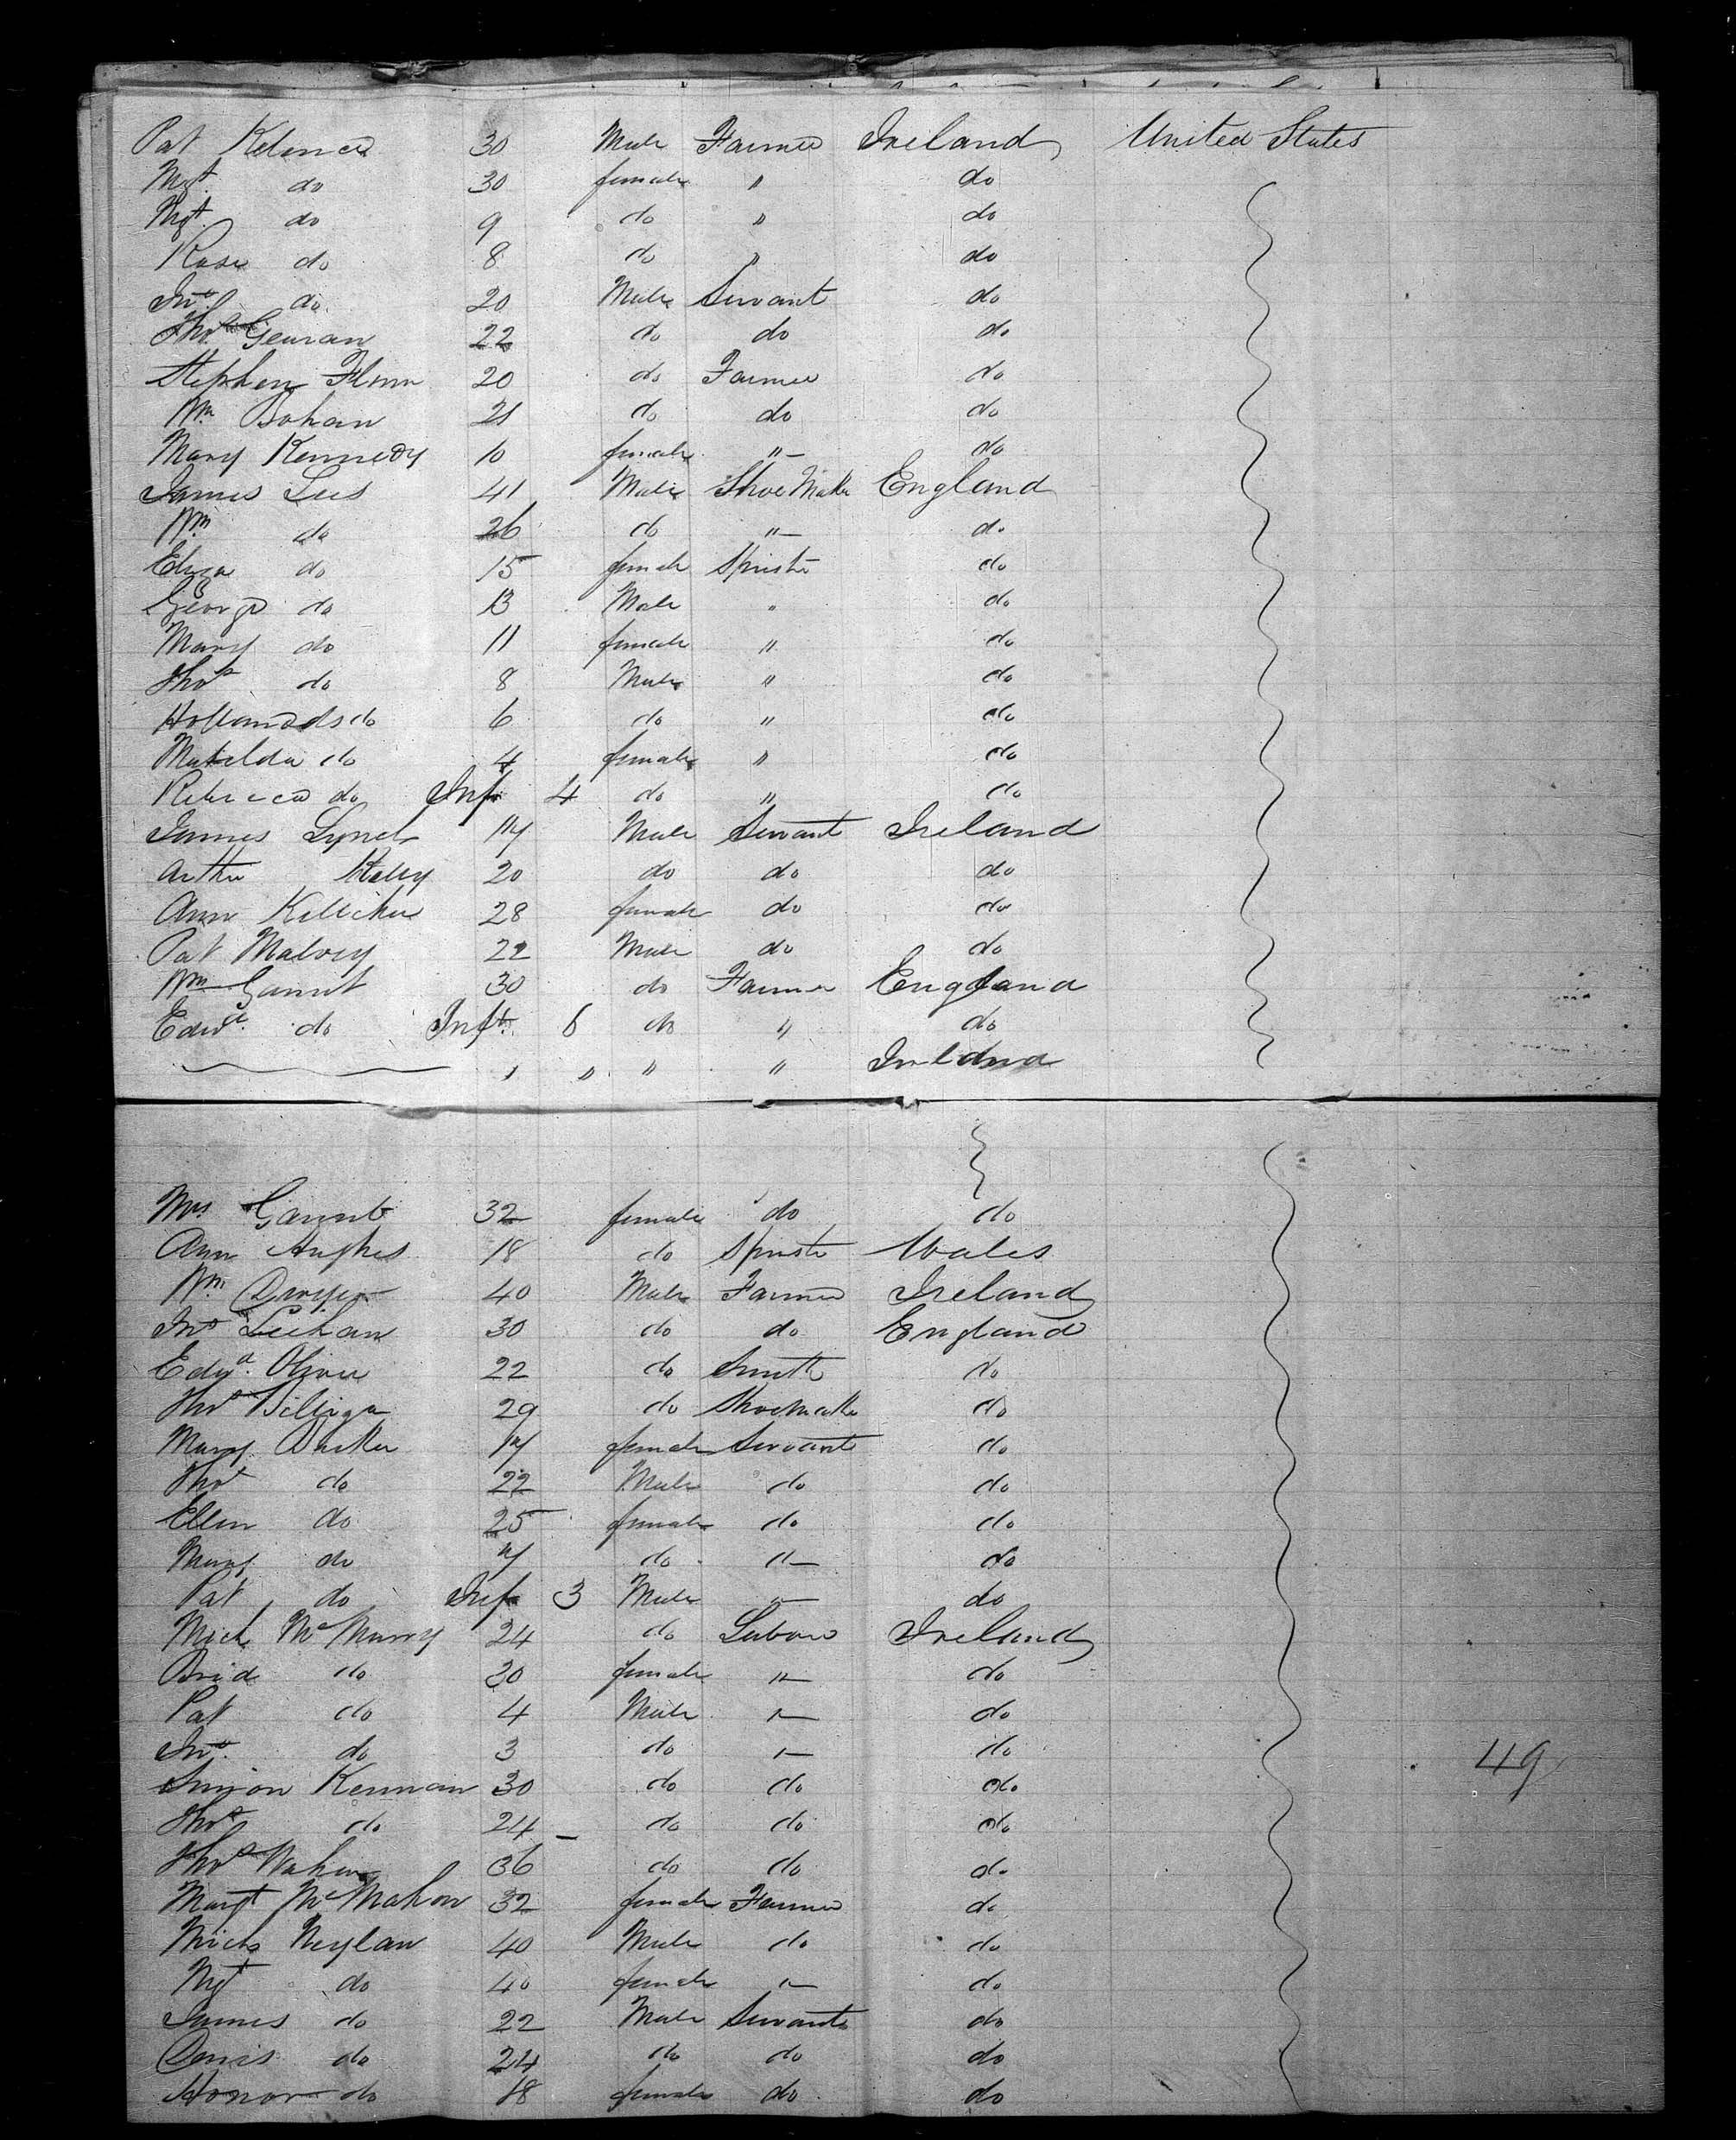 Pat 30 Male Farmer Ireland United States
Mgt. do 30 female " do
Mgt. do 9 do " do
Rose do 8 do " do
Jno. do. 20 Male Servant do
Thos Geuran 22 do do do
Stephen Flinn 20 do Farmer do
Wm. Bohan 21 do do do
Mary Kennedy 10 female "- do
James Lees 41 Male Shoe Maker England
Wm do 26 do "- do
Eliza do 15 female Spinster do
George do 13 Male " do
Mary do 11 female " do
Thos do 8 Male " do
do 6 do " do
Matilda do 4 female " do
Rebecca do Inft 4 do " do
James Lynch 17 Male Servant Ireland
Arthur Kelly 20 do do do
Ann 28 female do do
Pat Malvey 22 Male do do
Wm Garnet 30 do Farmer England
Edwd. do Inft. 6 do " do
" " " " Ireland
Mrs Garnet 32 female do do
Ann Hughes 18 do Spinster Wales
Wm Dwyer 40 Male Farmer Ireland
Jno Leehan 30 do do England
Edwd. Oliver 22 do Smith do
Thos 29 do Shoemaker do
Mary 17 female Servant do
Thos do 22 Male do do
Ellen do 25 female do do
Mary do 7 do "- do
Pat do Inft 3 Male "- do
Mich McMurry 24 do Labour Ireland
Brid do 30 female "- do
Pat do 4 Male "- do
Jno. do 3 do "- do
49
Simon Kennan 30 do do do
Thos do 24 do do do
Thos 36 do do do
Margt McMahon 32 female Farmer do
Mich Neylan 40 Male do do
Mgt do 40 female "- do
James do 22 Male Servant do
Denis do 24 do do do
Honor do 18 female do do